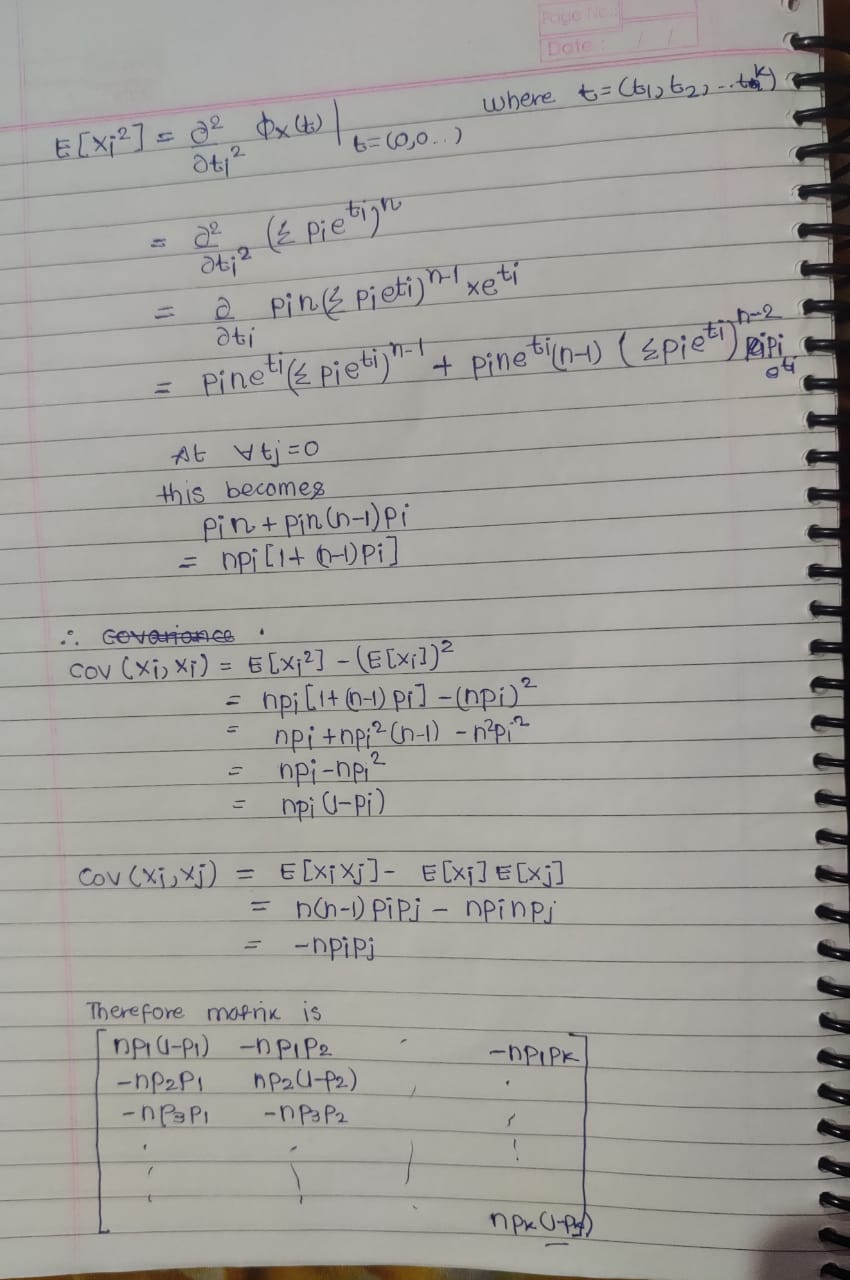 Page No.:
Date : / /
where t = (t1, t2, ..tk)
E[Xi²] = ∂²/∂ti² ϕx(t) | t=(0,0..)
= ∂²/∂ti² (Σ pie^ti)^n
= ∂/∂ti pin(Σ pie^ti)^n-1 × e^ti
= pine^ti(Σ pie^ti)^n-1 + pine^ti(n-1) (Σpie^ti)^n-2 pi e^ti
At ∀tj=0
this becomes
pin + pin(n-1)pi
= npi[1+(n-1)pi]
∴ covariance .
cov (xi, xi) = E[xi²] - (E[xi])²
= npi[1+(n-1)pi] - (npi)²
= npi + npi²(n-1) - n²pi²
= npi - npi²
= npi(1-pi)
cov(xi,xj) = E[xixj] - E[xi] E[xj]
= n(n-1)pipj - npinpj
= -npipj
Therefore matrix is
np1(1-p1) -np1p2 . -np1pk
-np2p1 np2(1-p2)
-np3p1 -np3p2
npk(1-pk)